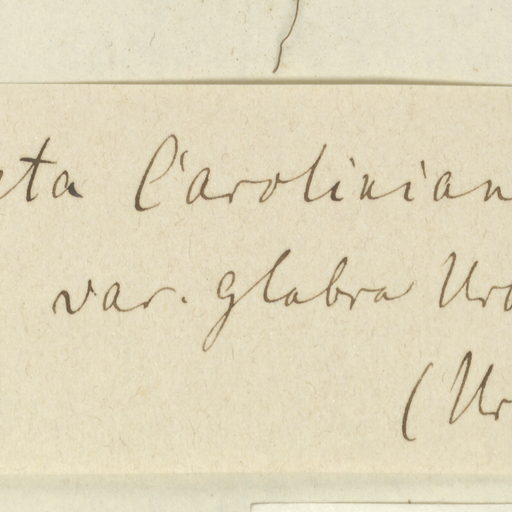 eta Carolinian
var. glabra Urb
(Ur